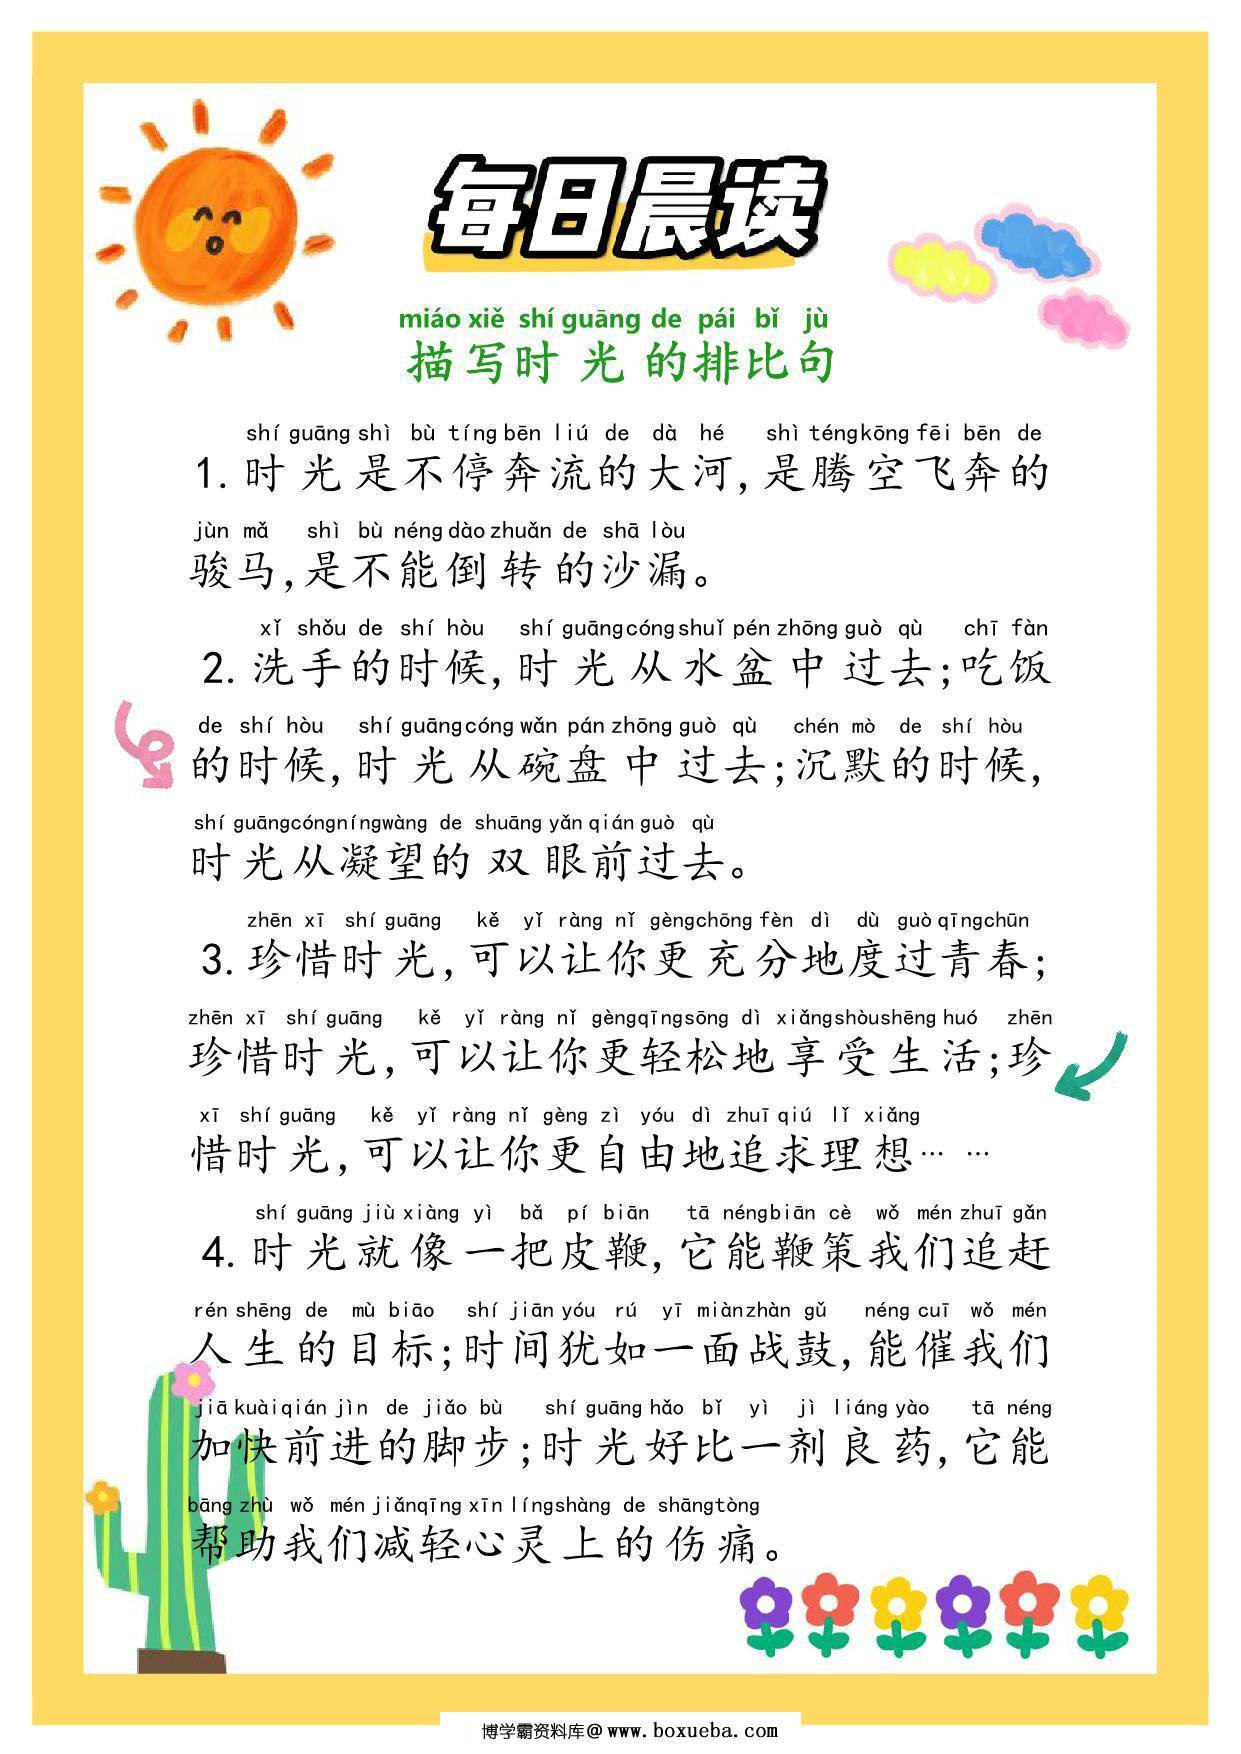 每日晨读
miáo xiě shí guāng de pái bǐ jù
描写时光的排比句
shí guāng shì bù tíng bēn liú de dà hé shì téng kōng fēi bēn de
1.时光是不停奔流的大河,是腾空飞奔的
jùn mǎ shì bù néng dào zhuǎn de shā lòu
骏马,是不能倒转的沙漏。
xǐ shǒu de shí hòu shí guāng cóng shuǐ pén zhōng guò qù chī fàn
2.洗手的时候,时光从水盆中过去;吃饭
de shí hòu shí guāng cóng wǎn pán zhōng guò qù chén mò de shí hòu
的时候,时光从碗盘中过去;沉默的时候,
shí guāng cóng níng wàng de shuāng yǎn qián guò qù
时光从凝望的双眼前过去。
zhēn xī shí guāng kě yǐ ràng nǐ gèng chōng fèn dì dù guò qīng chūn
3.珍惜时光,可以让你更充分地度过青春;
zhēn xī shí guāng kě yǐ ràng nǐ gèng qīng sōng dì xiǎng shòu shēng huó zhēn
珍惜时光,可以让你更轻松地享受生活;珍
xī shí guāng kě yǐ ràng nǐ gèng zì yóu dì zhuī qiú lǐ xiǎng
惜时光,可以让你更自由地追求理想……
shí guāng jiù xiàng yì bǎ pí biān tā néng biān cè wǒ mén zhuī gǎn
4.时光就像一把皮鞭,它能鞭策我们追赶
rén shēng de mù biāo shí jiān yóu rú yī miàn zhàn gǔ néng cuī wǒ mén
人生的目标;时间犹如一面战鼓,能催我们
jiā kuài qián jìn de jiǎo bù shí guāng hǎo bǐ yì jì liáng yào tā néng
加快前进的脚步;时光好比一剂良药,它能
bāng zhù wǒ mén jiǎn qīng xīn líng shàng de shāng tòng
帮助我们减轻心灵上的伤痛。
博学霸资料库@www.boxueba.com